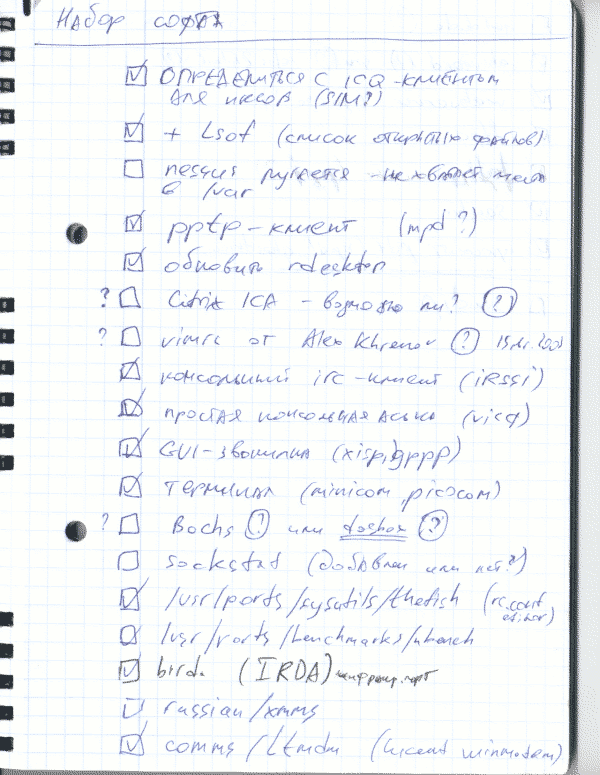 Набор софта
ОПРЕДЕЛИТЬСЯ С ICQ-КЛИЕНТОМ
для иксов (SIM?)
+ Lsof (список открытых файлов)
nessus ругается - не хватает места
в /var
pptp-клиент (mpd?)
обновить rdesktop
? Citrix ICA - возможно ли? (?)
? vimrc от Alex Khrenov (?)
консольный irc-клиент (iRSSi)
простая консольная аська (vicq)
GUI-звонилка (xisp, gppp)
терминал (minicom, picocom)
? Bochs (?) или dosbox (?)
sockstat (добавлен или нет?)
/usr/ports/sysutils/thefish (rc.conf
editor)
/usr/ports/benchmarks/ubench
birda (IRDA) инфракр. порт
russian/xmms
comms/ltmdm (lucent winmodem)